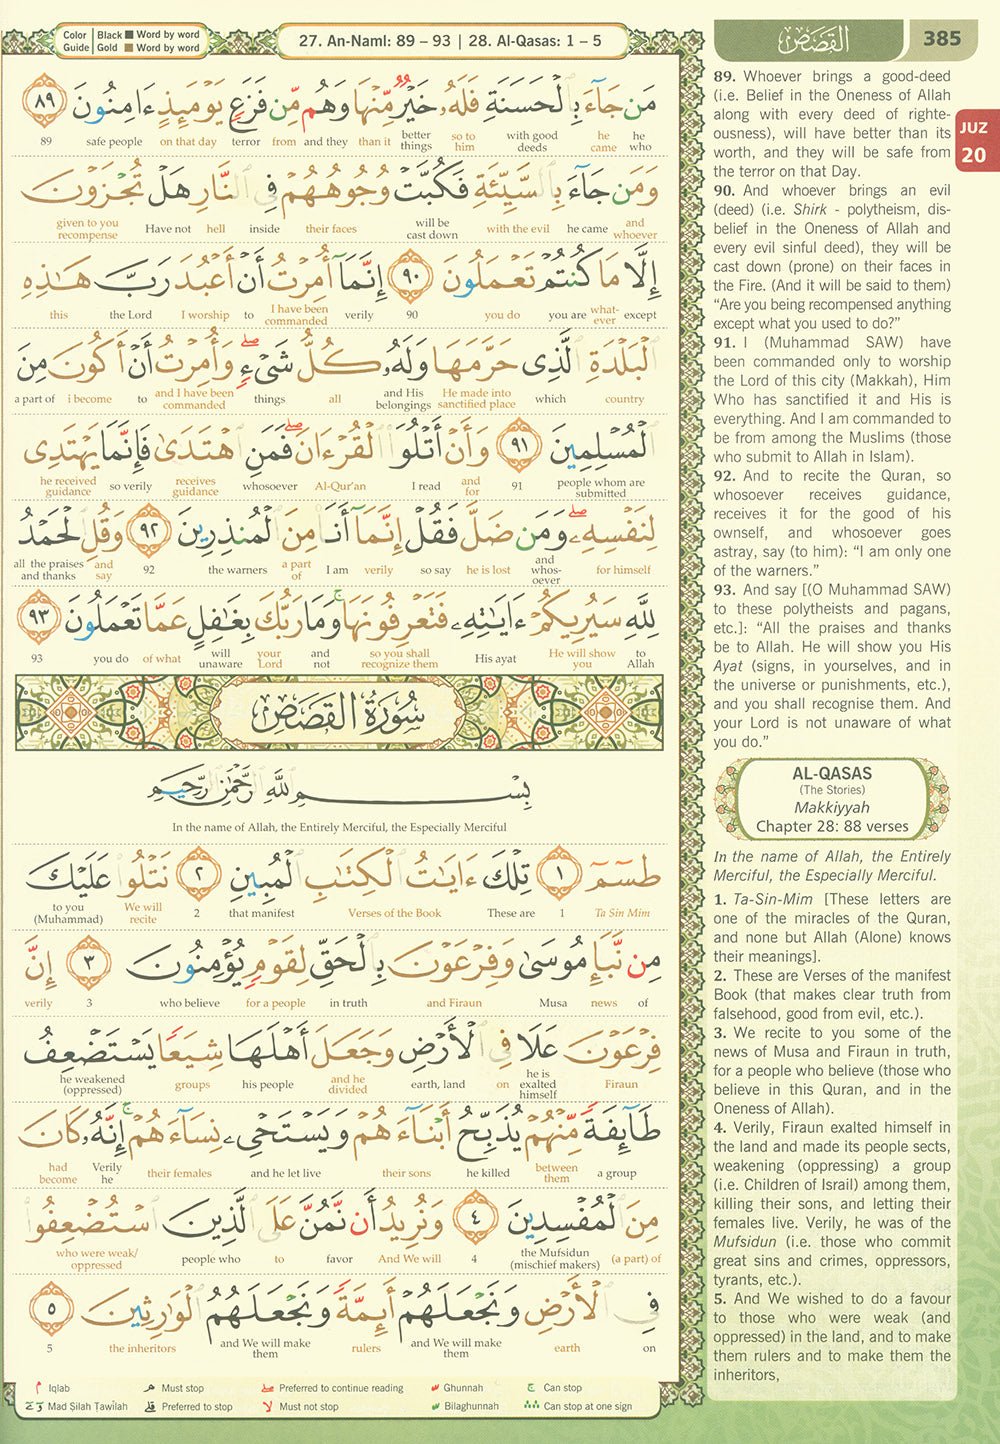 Color Guide | Black ■ Word by word
Gold ■ Word by word
27. An-Naml: 89 – 93 | 28. Al-Qasas: 1 – 5
القصص
385
JUZ
20
مَن جَآءَ بِالْحَسَنَةِ فَلَهُۥ خَيْرٌ مِّنْهَا وَهُم مِّن فَزَعٍ يَوْمَئِذٍ ءَامِنُونَ ٨٩
he who | he came | with good deeds | so to him | better things | than it | and they | from | terror | on that day | safe people | 89
وَمَن جَآءَ بِالسَّيِّئَةِ فَكُبَّتْ وُجُوهُهُمْ فِي النَّارِ هَلْ تُجْزَوْنَ
and whoever | he came | with the evil | will be cast down | their faces | inside | hell | Have not | given to you recompense
إِلَّا مَا كُنتُمْ تَعْمَلُونَ ٩٠ إِنَّمَآ أُمِرْتُ أَنْ أَعْبُدَ رَبَّ هَٰذِهِ
except | what-ever | you are | you do | 90 | verily | I have been commanded | to | I worship | the Lord | this
الْبَلْدَةِ الَّذِى حَرَّمَهَا وَلَهُۥ كُلُّ شَىْءٍ ۖ وَأُمِرْتُ أَنْ أَكُونَ مِنَ
country | which | He made into sanctified place | and His belongings | all | things | and I have been commanded | to | i become | a part of
الْمُسْلِمِينَ ٩١ وَأَنْ أَتْلُوَا الْقُرْءَانَ ۖ فَمَنِ اهْتَدَىٰ فَإِنَّمَا يَهْتَدِى
people whom are submitted | 91 | and for | I read | Al-Qur'an | whosoever | receives guidance | so verily | he received guidance
لِنَفْسِهِۦ ۖ وَمَن ضَلَّ فَقُلْ إِنَّمَآ أَنَا مِنَ الْمُنذِرِينَ ٩٢ وَقُلِ الْحَمْدُ
for himself | and whos-oever | he is lost | so say | verily | I am | a part of | the warners | 92 | and say | all the praises and thanks
لِلَّهِ سَيُرِيكُمْ ءَايَٰتِهِۦ فَتَعْرِفُونَهَا ۚ وَمَا رَبُّكَ بِغَٰفِلٍ عَمَّا تَعْمَلُونَ ٩٣
to Allah | He will show you | His ayat | so you shall recognize them | and not | your Lord | will unaware | of what | you do | 93
سُورَةُ القَصَصِ
بِسْمِ اللَّهِ الرَّحْمَٰنِ الرَّحِيمِ
In the name of Allah, the Entirely Merciful, the Especially Merciful
طسٓمٓ ١ تِلْكَ ءَايَٰتُ الْكِتَٰبِ الْمُبِينِ ٢ نَتْلُوا عَلَيْكَ
Ta Sin Mim | 1 | These are | Verses of the Book | that manifest | 2 | We will recite | to you (Muhammad)
مِن نَّبَإِ مُوسَىٰ وَفِرْعَوْنَ بِالْحَقِّ لِقَوْمٍ يُؤْمِنُونَ ٣ إِنَّ
of | news | Musa | and Firaun | in truth | for a people | who believe | 3 | verily
فِرْعَوْنَ عَلَا فِى الْأَرْضِ وَجَعَلَ أَهْلَهَا شِيَعًا يَسْتَضْعِفُ
Firaun | he is exalted himself | on | earth, land | and he divided | his people | groups | he weakened (oppressed)
طَآئِفَةً مِّنْهُمْ يُذَبِّحُ أَبْنَآءَهُمْ وَيَسْتَحْىِۦ نِسَآءَهُمْ ۚ إِنَّهُۥ كَانَ
a group | between them | he killed | their sons | and he let live | their females | Verily he | had become
مِنَ الْمُفْسِدِينَ ٤ وَنُرِيدُ أَن نَّمُنَّ عَلَى الَّذِينَ اسْتُضْعِفُوا
(a part) of | the Mufsidun (mischief makers) | 4 | And We will | favor | to | people who | who were weak/ oppressed
فِى الْأَرْضِ وَنَجْعَلَهُمْ أَئِمَّةً وَنَجْعَلَهُمُ الْوَارِثِينَ ٥
on | earth | and We will make them | rulers | and We will make them | the inheritors | 5
Iqlab | Must stop | Preferred to continue reading | Ghunnah | Can stop
Mad Silah Tawilah | Preferred to stop | Must not stop | Bilaghunnah | Can stop at one sign
89. Whoever brings a good-deed
(i.e. Belief in the Oneness of Allah
along with every deed of righte-
ousness), will have better than its
worth, and they will be safe from
the terror on that Day.
90. And whoever brings an evil
(deed) (i.e. Shirk - polytheism, dis-
belief in the Oneness of Allah and
every evil sinful deed), they will be
cast down (prone) on their faces in
the Fire. (And it will be said to them)
“Are you being recompensed anything
except what you used to do?”
91. I (Muhammad SAW) have
been commanded only to worship
the Lord of this city (Makkah), Him
Who has sanctified it and His is
everything. And I am commanded to
be from among the Muslims (those
who submit to Allah in Islam).
92. And to recite the Quran, so
whosoever receives guidance,
receives it for the good of his
ownself, and whosoever goes
astray, say (to him): “I am only one
of the warners.”
93. And say [(O Muhammad SAW)
to these polytheists and pagans,
etc.]: “All the praises and thanks
be to Allah. He will show you His
Ayat (signs, in yourselves, and in
the universe or punishments, etc.),
and you shall recognise them. And
your Lord is not unaware of what
you do.”
AL-QASAS
(The Stories)
Makkiyyah
Chapter 28: 88 verses
In the name of Allah, the Entirely
Merciful, the Especially Merciful.
1. Ta-Sin-Mim [These letters are
one of the miracles of the Quran,
and none but Allah (Alone) knows
their meanings].
2. These are Verses of the manifest
Book (that makes clear truth from
falsehood, good from evil, etc.).
3. We recite to you some of the
news of Musa and Firaun in truth,
for a people who believe (those who
believe in this Quran, and in the
Oneness of Allah).
4. Verily, Firaun exalted himself in
the land and made its people sects,
weakening (oppressing) a group
(i.e. Children of Israil) among them,
killing their sons, and letting their
females live. Verily, he was of the
Mufsidun (i.e. those who commit
great sins and crimes, oppressors,
tyrants, etc.).
5. And We wished to do a favour
to those who were weak (and
oppressed) in the land, and to make
them rulers and to make them the
inheritors,